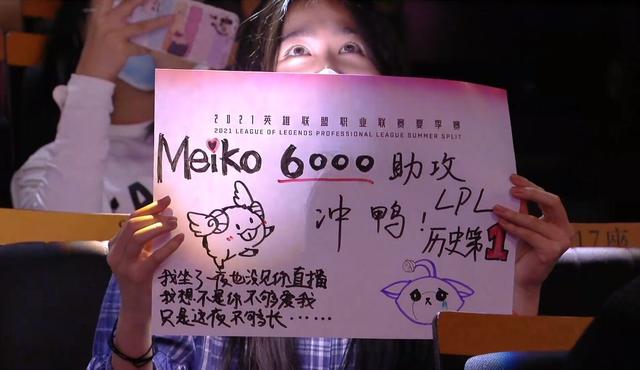 2021英雄联盟职业联赛夏季赛
2021 LEAGUE OF LEGENDS PROFESSIONAL LEAGUE SUMMER SPLIT
Meiko 6000 助攻
冲鸭! LPL
历史第1
我坐了一夜也没见你直播
我想不是你不够爱我
只是这夜不够长……
17座